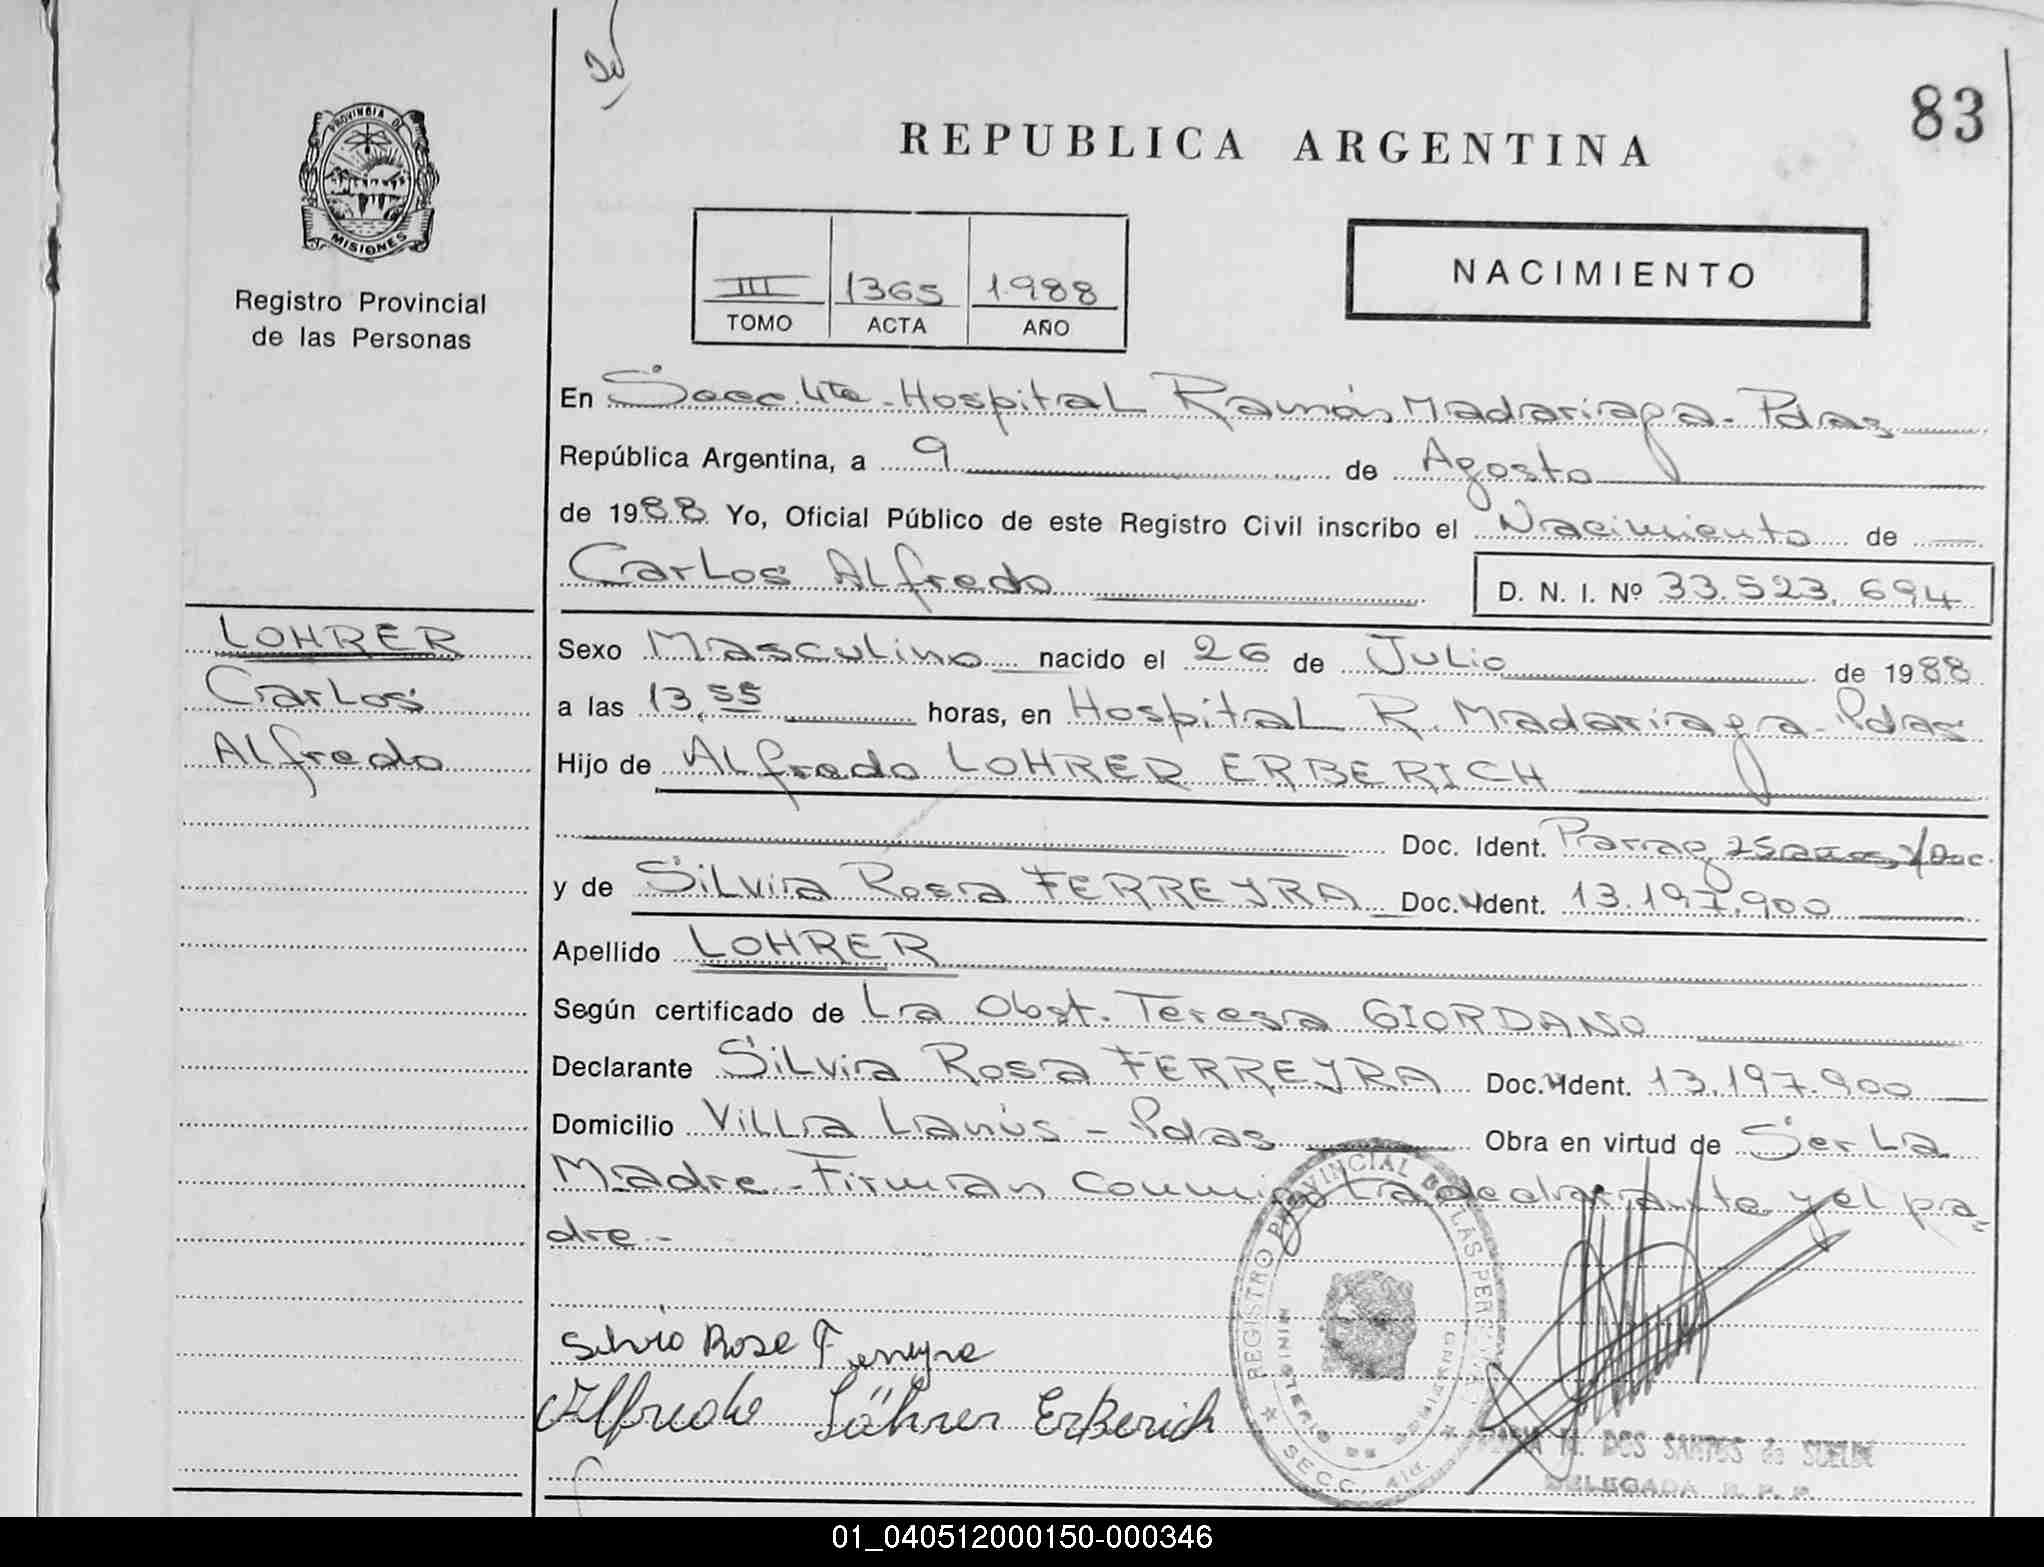 83
REPUBLICA ARGENTINA
PROVINCIA DE
MISIONES
Registro Provincial
de las Personas
III 1365 1988
TOMO ACTA AÑO
NACIMIENTO
En Secc. 4ta. Hospital Ramón Madariaga - Pdas
República Argentina, a 9 de Agosto
de 1988 Yo, Oficial Público de este Registro Civil inscribo el Nacimiento de
Carlos Alfredo D. N. I. Nº 33.523.694
LOHRER
Carlos
Alfredo
Sexo Masculino nacido el 26 de Julio de 1988
a las 13,55 horas, en Hospital R. Madariaga - Pdas
Hijo de Alfredo LOHRER ERBERICH
Doc. Ident. Parag 25 años s/Doc.
y de Silvia Rosa FERREYRA Doc. Ident. 13.197.900
Apellido LOHRER
Según certificado de La Obst. Teresa GIORDANO
Declarante Silvia Rosa FERREYRA Doc. Ident. 13.197.900
Domicilio Villa Lanús - Pdas Obra en virtud de Ser La
Madre - Firman conmigo La declarante y el pa=
dre -
Silvia Rosa Ferreyra
Alfredo Löhrer Erberich
REGISTRO PROVINCIAL DE LAS PERSONAS
MINISTERIO DE GOBIERNO
SECC. 4ta.
M. DOS SANTOS de
DELEGADA R. P. P.
01_040512000150-000346